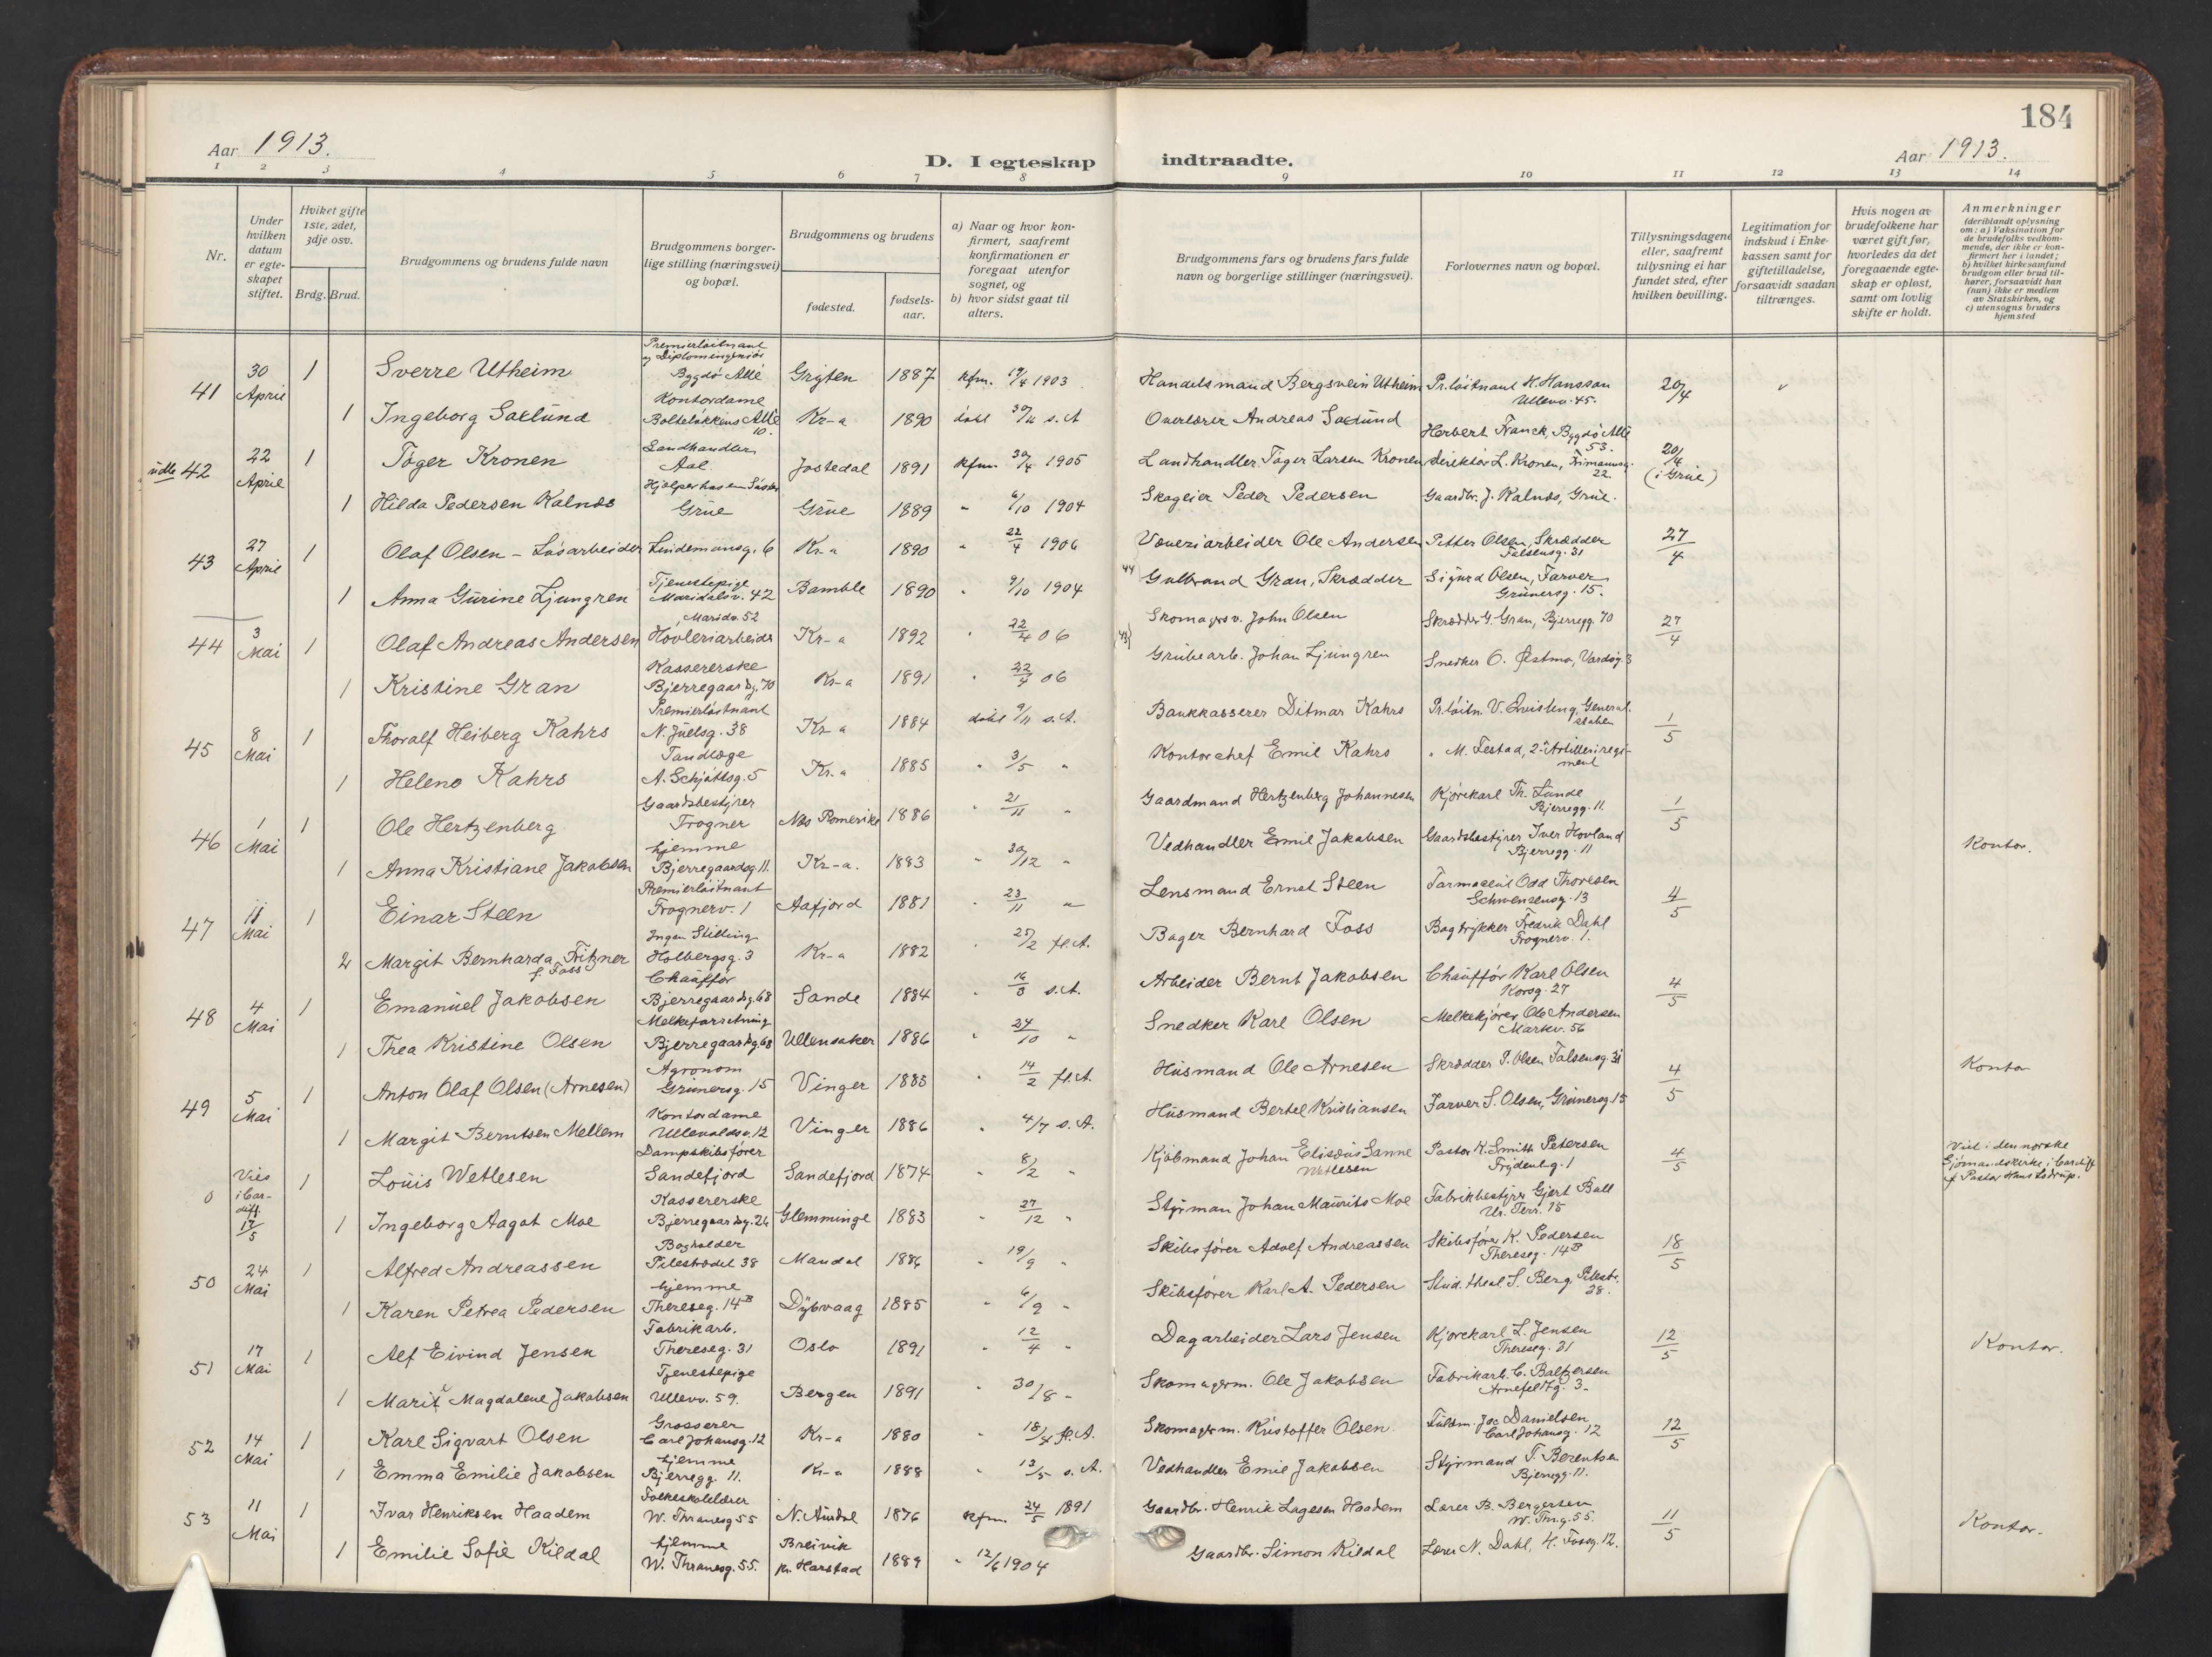 184
Aar 1913.
D. I egteskap indtraadte.
Aar 1913.
1 2 3 4 5 6 7 8 9 10 11 12 13 14
Nr.
Under hvilken datum er egteskapet stiftet.
Hviket gifte 1ste, 2det, 3dje osv.
Brdg. Brud.
Brudgommens og brudens fulde navn
Brudgommens borgerlige stilling (næringsvei) og bopæl.
Brudgommens og brudens
fødested.
fødselsaar.
a) Naar og hvor konfirmert, saafremt konfirmationen er foregaat utenfor sognet, og
b) hvor sidst gaat til alters.
Brudgommens fars og brudens fars fulde navn og borgerlige stillinger (næringsvei).
Forlovernes navn og bopæl.
Tillysningsdagene eller, saafremt tillysning ei har fundet sted, efter hvilken bevilling.
Legitimation for indskud i Enkekassen samt for giftetilladelse, forsaavidt saadan tiltrænges.
Hvis nogen av brudefolkene har været gift før, hvorledes da det foregaaende egteskap er opløst, samt om lovlig skifte er holdt.
Anmerkninger
(deriblandt oplysning om: a) Vaksination for de brudefolks vedkommende, der ikke er konfirmert her i landet;
b) hvilket kirkesamfund brudgom eller brud tilhører, forsaavidt han (hun) ikke er medlem av Statskirken, og
c) utensogns bruders hjemsted
41 30 April 1 Sverre Utheim Premierløitnant og Diplomingeniør Bygdø Allé Gryten 1887 kfm. 19/4 1903 Handelsmand Bergsvein Utheim Pr.løitnant H. Hansson Ullevv. 45. 20/4
1 Ingeborg Saelund Kontordame Bolteløkkens Allé 10. Kr-a 1890 døbt 30/11 s.A Overlærer Andreas Saelund Herbert Franck, Bygdø Allé 53.
udb 42 22 April 1 Tøger Kronen Landhandler Aal. Jostedal 1891 kfm 30/4 1905 Landhandler Tøger Larsen Kronen direktør L. Kronen, 22. 20/4 (i Grue)
1 Hilda Pedersen Kalnæs Grue Grue 1889 " 6/10 1904 Skogeier Peder Pedersen Gaardbr. J. Kalnæs, Grue.
43 27 April 1 Olaf Olsen - Løsarbeider Lindemansg. 6 Kr-a 1890 " 22/4 1906 Væveriarbeider Ole Andersen Petter Olsen, Skrædder Falsensg. 31 27/4
1 Anna Gurine Ljungren Tjenestepige Maridalsv. 42 Bamble 1890 " 9/10 1904 44 Gulbrand Gran, Skrædder Sigurd Olsen, Farver Grünersg. 15.
44 3 Mai 1 Olaf Andreas Andersen Maridv. 52 Høvleriarbeider Kr-a 1892 " 22/4 06 Skomagersv. John Olsen Skrædder G. Gran, Bjerregg. 70 27/4
1 Kristine Gran Kassererske Bjerregaardsg. 70 Kr-a 1891 " 22/4 06 43 Grubearb. Johan Ljungren Snedker O. Østmo, Vardøg. 3
45 8 Mai 1 Thoralf Heiberg Kahrs Premierløitnant N. Juelsg. 38 Kr-a 1884 døbt 9/11 s.A. Bankkasserer Ditmar Kahrs Pr.løitn. V. Quisling, Generalstaben 1/5
1 Helene Kahrs Tandlæge A. Schjøttsg. 5 Kr.a 1885 " 3/5 " Kontorchef Emil Kahrs " M. Festad, 2. Artilleriregiment
46 1 Mai 1 Ole Hertzenberg Gaardsbestyrer Frogner Næs Romerike 1886 " 21/11 " Gaardmand Hertzenberg Johannesen Kjørekarl Th. Lunde Bjerregg. 11. 1/5
1 Anna Kristiane Jakobsen hjemme Bjerregaardsg. 11. Kr-a. 1883 " 30/12 " Vedhandler Emil Jakobsen Gaardsbestyrer Iver Hovland Bjerregg. 11 Kontor.
47 11 Mai 1 Einar Steen Premierløitnant Frognerv. 1 Aafjord 1881 " 23/11 " Lensmand Ernst Steen Farmaceut Odd Thoresen Schwensensg. 13 4/5
2 Margit Bernharda Fritzner f. Foss Ingen Stilling Holbergsg. 3 Kr-a 1882 " 25/2 fl.A. Bager Bernhard Foss Bogtrykker Fredrik Dahl Frognerv. 1.
48 4 Mai 1 Emanuel Jakobsen Chauffør Bjerregaardsg. 68 Sande 1884 " 16/3 s.A. Arbeider Bernt Jakobsen Chauffør Karl Olsen Korsg. 27 4/5
1 Thea Kristine Olsen Melkeforretning Bjerregaardsg. 68 Ullensaker 1886 " 24/10 " Snedker Karl Olsen Melkekjører Ole Andersen Markv. 56
49 5 Mai 1 Anton Olaf Olsen (Arnesen) Agronom Grünersg. 15 Vinger 1885 " 14/2 fl.A. Husmand Ole Arnesen Skrædder P. Olsen Falsensg. 31 4/5 Kontor
1 Margit Berntsen Mellem Kontordame Ullevaldsv. 12 Vinger 1886 " 4/7 s.A. Husmand Bertel Kristiansen Farver S. Olsen, Grünersg 15
0 Vies i Cardiff 17/5 1 Louis Wetlesen Dampskibsfører Sandefjord Sandefjord 1874 " 8/2 " Kjøbmand Johan Elisæus Sanne Wetlesen Pastor K. Smith Petersen Frydenlg. 1 4/5 Viet i den norske Sjømandskirke i Cardiff af Pastor Hans
1 Ingeborg Aagot Moe Kassererske Bjerregaardsg. 26 Glemminge 1883 " 27/12 " Styrman Johan Maurits Moe Fabrikbestyrer Gjert Ur. Terr. 15
50 24 Mai 1 Alfred Andreassen Bogholder Pilestrædet 38 Mandal 1886 " 19/9 " Skibsfører Adolf Andreassen Skibsfører K. Pedersen Thereseg. 14B 18/5
1 Karen Petrea Pedersen hjemme Thereseg. 14B Dybvaag 1885 " 6/9 " Skibsfører Karl A. Pedersen Stud. theol. S. Berg, Pilestr. 38.
51 17 Mai 1 Alf Eivind Jensen Fabrikarb. Thereseg. 31 Oslo 1891 " 12/4 " Dagarbeider Lars Jensen Kjørekarl L. Jensen Thereseg. 31 12/5 Kontor.
1 Marit Magdalene Jakobsen Tjenestepige Ullevv. 59. Bergen 1891 " 30/8 " Skomagerm. Ole Jakobsen Fabrikarb. C. Baltzersen 3
52 14 Mai 1 Karl Sigvart Olsen Grosserer Carl Johansg. 12 Kr-a 1880 " 18/4 fl.A. Skomagerm. Kristoffer Olsen Fuldm. Danielsen Carl Johansg. 12 12/5
1 Emma Emilie Jakobsen hjemme Bjerregg. 11. Kr-a 1888 " 13/5 s.A. Vedhandler Emil Jakobsen Styrmand T. Berentsen Bjerregg. 11.
53 11 Mai 1 Ivar Henriksen Haadem Folkeskolelærer W. Thranesg 55 N. Aurdal 1876 kfm. 24/5 1891 Gaardbr. Henrik Lagesen Haadem Lærer B. Bergersen W. Thr.g. 55. 11/5 Kontor.
1 Emilie Sofie Kildal hjemme W. Thranesg. 55. Breivik pr. Harstad 1889 " 12/6 1904 Gaardbr. Simon Kildal Lærer N. Dahl, H. Fossg. 12.